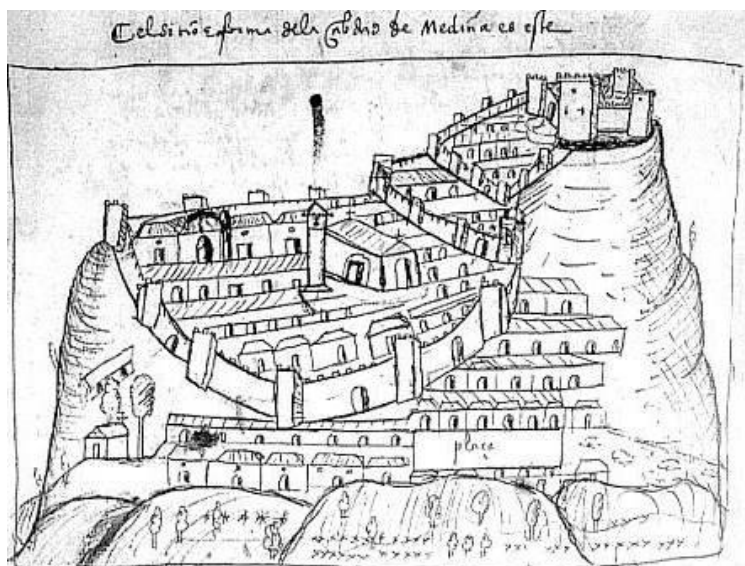 El sitio e forma dela çibdad de Medina es este
plaça